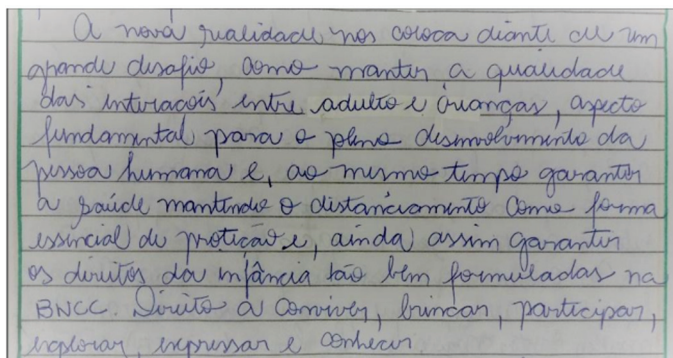 A nova realidade nos coloca diante de um
grande desafio, como manter a qualidade
das interações entre adulto e crianças, aspecto
fundamental para o pleno desenvolvimento da
pessoa humana e, ao mesmo tempo garantir
a saúde mantendo o distanciamento como forma
essencial de proteção e, ainda assim garantir
os direitos da infância tão bem formuladas na
BNCC. Direito a conviver, brincar, participar,
explorar, expressar e conhecer.